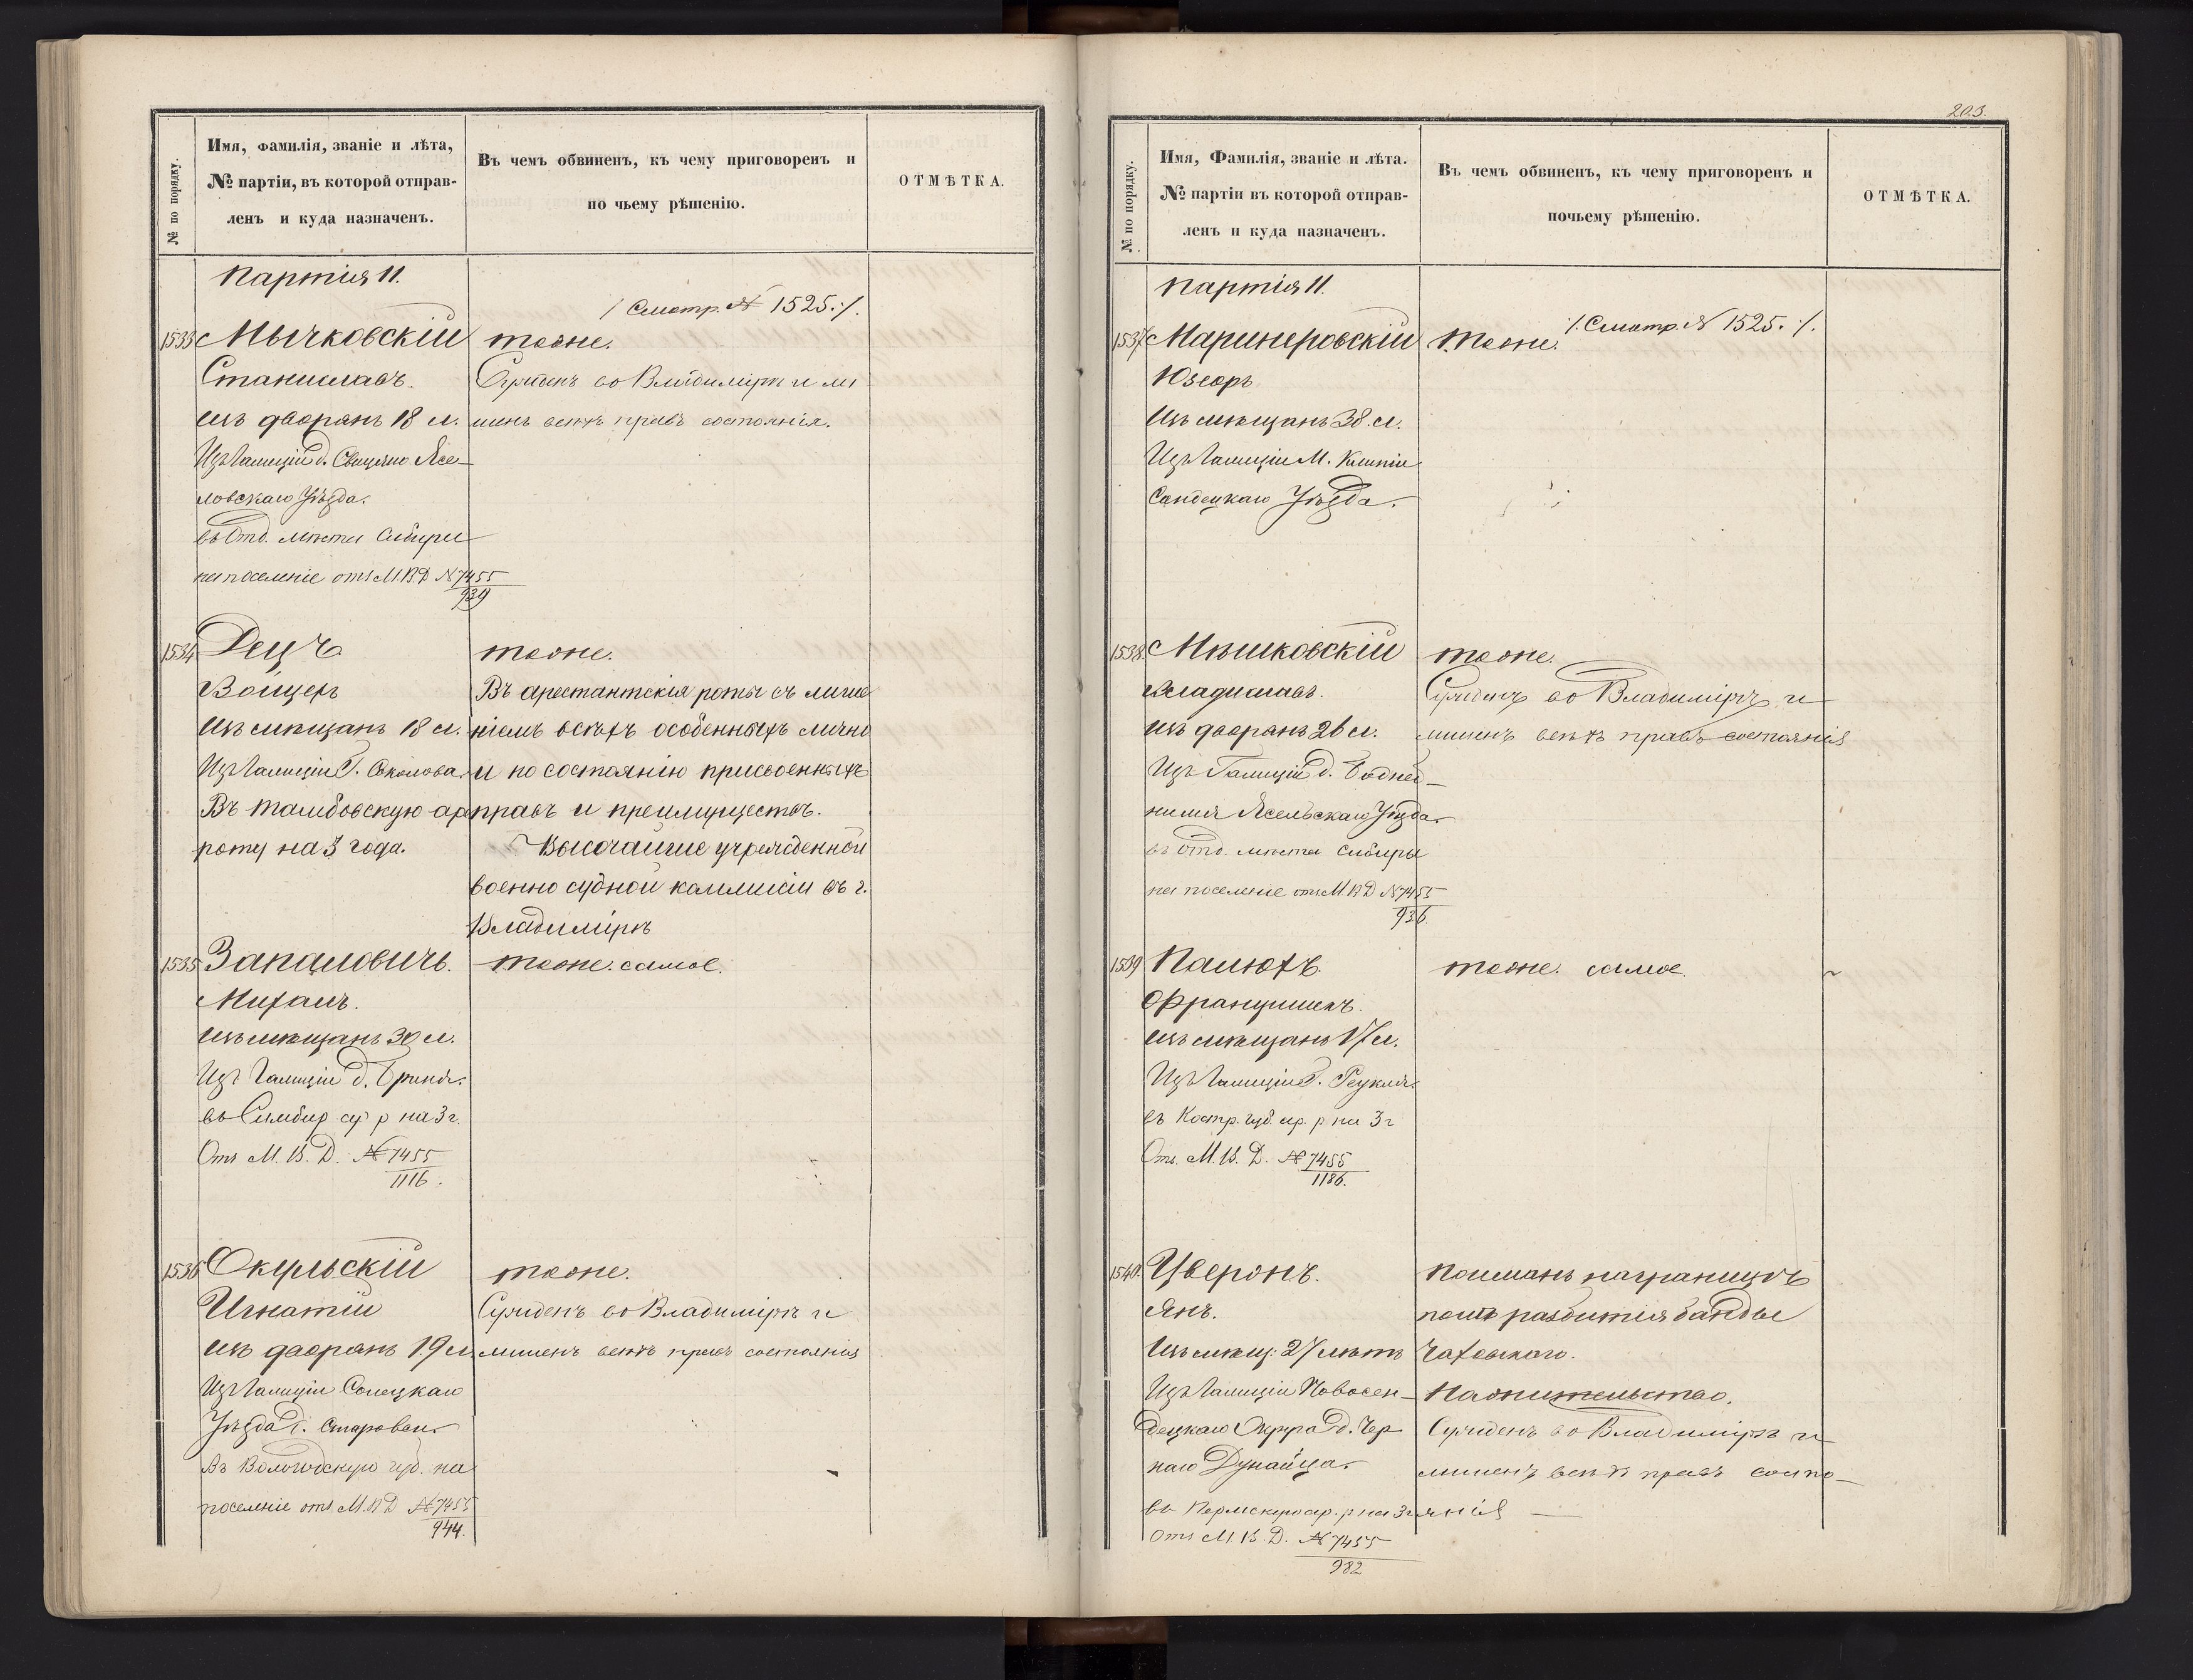 № по порядку.
Имя, фамилія, званіе и лѣта,
№ партіи, въ которой отправ-
ленъ и куда назначенъ.
Въ чемъ обвиненъ, къ чему приговоренъ и
по чьему рѣшенію.
ОТМѢТКА.
Партія 11.
/ Смотр. № 1525./.
1533 Мычковскій
Станиславъ.
изъ дворянъ 18 л.
Изъ Галиціи д. Свицяно Ясе-
ловскаго Уѣзда.
въ отд. мѣста Сибири
на поселеніе отъ МВД № 7455
939
тоже.
Сужденъ во Владимірѣ и ли
шенъ всѣхъ правъ состоянія.
1534 Децъ
Войцехъ
изъ мѣщанъ 18 л.
Изъ Галиціи Г. Соколова.
Въ тамбовскую ар
роту на 3 года.
тоже.
Въ арестантскія роты съ лише
ніемъ всѣхъ особенныхъ лично
и по состоянію присвоенныхъ
правъ и преимуществъ.
Высочайше учрежденной
военно судной коммисіи въ г.
Владимірѣ
1535 Запаловичъ.
Михаилъ.
изъ мѣщанъ 30 л.
Изъ Галиціи д.
въ Симбир ар р на 3 г.
Отъ М. В. Д. № 7455
1116.
тоже. самое.
1536 Окульскій
Игнатій
изъ дворянъ 19 л.
Изъ Галиціи Сонецкаго
Уѣзда
Въ Вологодскую губ. на
поселеніе отъ М.ВД № 7455
944.
тоже.
Сужденъ во Владимірѣ и
лишенъ всѣхъ правъ состоянія
203.
№ по порядку.
Имя, Фамилія, званіе и лѣта.
№ партіи въ которой отправ-
ленъ и куда назначенъ.
Въ чемъ обвиненъ, къ чему приговоренъ и
почьему рѣшенію.
ОТМѢТКА.
Партія 11.
/. Смотр. № 1525. /.
1537 Маринеровскій
Юзефъ
Изъ мѣщанъ 38. л.
Изъ Галиціи М.
Сандецкаго Уѣзда.
тоже.
1538. Мѣшковскій
Владиславъ.
изъ дворянъ 26 л.
Изъ Галиціи д.
Ясельскаго Уѣзда.
въ отд. мѣста Сибири
на поселеніе отъ М.ВД № 7455
936.
тоже.
Сужденъ во Владимірѣ и
лишенъ всѣхъ правъ состоянія
1539 Палюхъ.
Францишекъ.
изъ мѣщанъ 17 л.
Изъ Галиціи
въ Костр. губ. ар. р на 3 г
Отъ. М. В. Д. № 7455
1186.
тоже. самое.
1540. Цверонъ.
Янъ.
Изъ мѣщ: 27 лѣтъ
Изъ Галиціи Новосен-
децкаго Округа д. Чер
наго Дунайца.
въ Пермскую ар. р на 3 г
Отъ М. В. Д. № 7455
982
Пойманъ на границѣ
послѣ разбитія банды
Чаховскаго.
На жительство.
Сужденъ во Владимірѣ и
лишенъ всѣхъ правъ состо-
янія